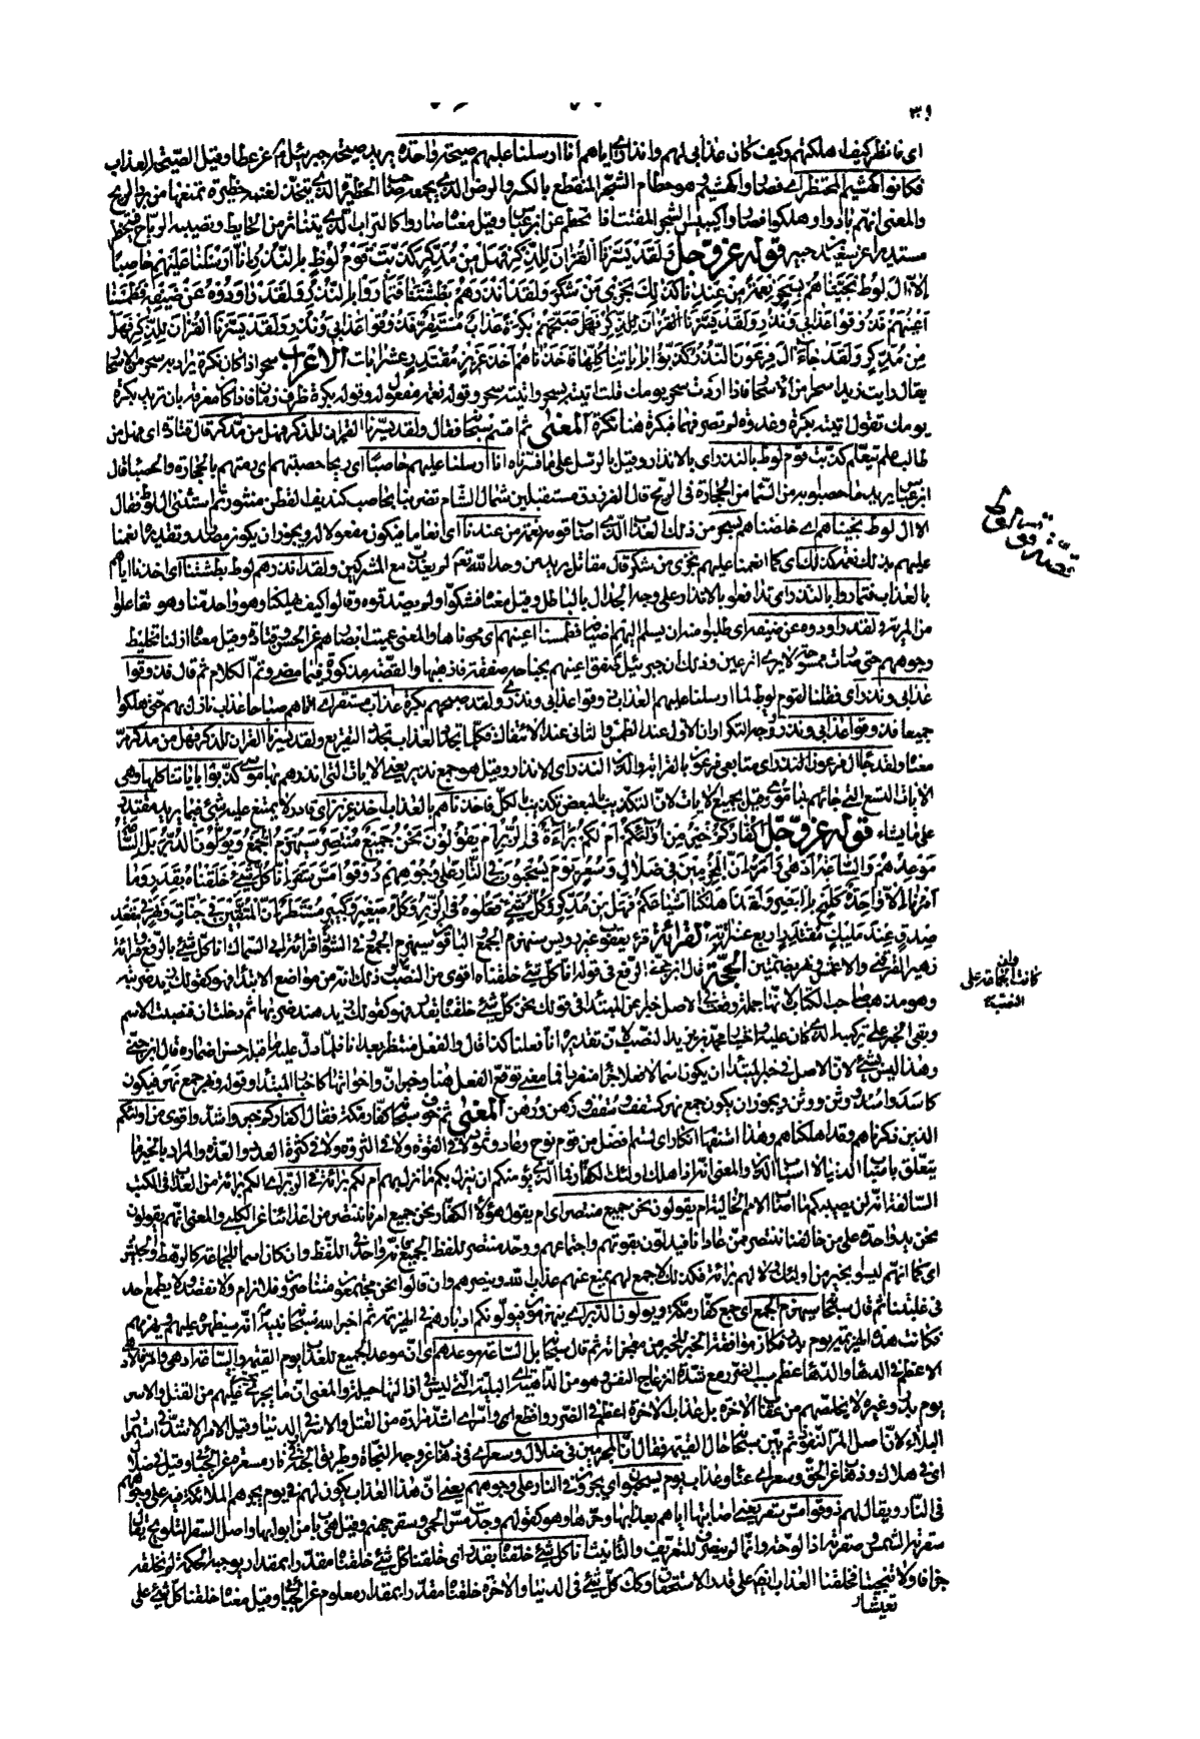 ٣٩
اى فانظر كيف اهلكتهم وكيف كان عذابى لهم وانذارى اياهم انا ارسلنا عليهم صيحة واحدة يريد صيحة جبرئيل عن عطا وقيل الصيحة العذاب
فكانوا كهشيم المحتظر اى فصاروا كهشيم وهو حطام الشجر المنقطع بالكسر والرض الذى يجمعه صاحب الحظيرة الذى يتخذ لغنمه حظيرة تمنعها من برد الريح
والمعنى انهم بادوا وهلكوا فصاروا كيبيس الشجر المفتت اذا تحطم عن ابن عباس وقيل معناه صاروا كالتراب الذى يتناثر من الحايط وتصيبه الرياح فيتحظر
مستديرا عن سعيد بن جبير قوله عز وجل وَلَقَدْ يَسَّرْنَا الْقُرْاٰنَ لِلذِّكْرِ فَهَلْ مِنْ مُدَّكِرٍ كَذَّبَتْ قَوْمُ لُوطٍ بِالنُّذُرِ اِنَّا اَرْسَلْنَا عَلَيْهِمْ حَاصِبًا
اِلَّا اٰلَ لُوطٍ نَجَّيْنَاهُمْ بِسَحَرٍ نِعْمَةً مِنْ عِنْدِنَا كَذٰلِكَ نَجْزِى مَنْ شَكَرَ وَلَقَدْ اَنْذَرَهُمْ بَطْشَتَنَا فَتَمَارَوْا بِالنُّذُرِ وَلَقَدْ رَاوَدُوهُ عَنْ ضَيْفِهِ فَطَمَسْنَا
اَعْيُنَهُمْ فَذُوقُوا عَذَابِى وَنُذُرِ وَلَقَدْ صَبَّحَهُمْ بُكْرَةً عَذَابٌ مُسْتَقِرٌّ فَذُوقُوا عَذَابِى وَنُذُرِ وَلَقَدْ يَسَّرْنَا الْقُرْاٰنَ لِلذِّكْرِ فَهَلْ
مِنْ مُدَّكِرٍ وَلَقَدْ جَاءَ اٰلَ فِرْعَوْنَ النُّذُرُ كَذَّبُوا بِاٰيَاتِنَا كُلِّهَا فَاَخَذْنَاهُمْ اَخْذَ عَزِيزٍ مُقْتَدِرٍ عشر ايات الاعراب سحر اذا كان نكرة يراد به سحر من الاسحار
يقال رايت زيدا سحرا من الاسحار فاذا اردت سحر يومك قلت اتيته بسحر واتيته سحر وقوله نعمة مفعول له وقوله بكرة ظرف زمان فاذا كان معرفة بان تريد بكرة
يومك تقول اتيته بكرة وغدوة لم تصرفهما فبكرة هنا نكرة المعنى ثم اقسم سبحانه فقال ولقد يسرنا القران للذكر فهل من مدكر قال قتادة اى فهل من
طالب علم يتعلم كذبت قوم لوط بالنذر اى بالانذار وقيل بالرسل على ما فسرناه انا ارسلنا عليهم حاصبا اى ريحا حصبتهم اى رمتهم بالحجارة والحصباء قال
ابن عباس يريد ما حصبوا به من السماء من الحجارة فى الريح قال الفرزدق مستقبلين شمال الشام تضربنا بحاصب كنديف القطن منثور ثم استثنى ال لوط فقال
الا ال لوط نجيناهم اى خلصناهم بسحر من ذلك العذاب الذى اصاب قومه نعمة من عندنا اى انعاما فيكون مفعولا له ويجوز ان يكون مصدرا وتقديره انعمنا
عليهم بذلك نعمة كذلك اى كما انعمنا عليهم نجزى من شكر قال مقاتل يريد من وحد الله تعالى لم يعذب مع المشركين ولقد انذرهم لوط بطشتنا اى اخذنا اياهم
بالعذاب فتماروا بالنذر اى تدافعوا بالانذار على وجه الجدال بالباطل وقيل معناه فشكوا ولم يصدقوه وقالوا كيف يهلكنا وهو واحد منا وهو تفاعلوا
من المرية ولقد راودوه عن ضيفه اى طلبوا منه ان يسلم اليهم اضيافه فطمسنا اعينهم اى محوناها والمعنى عميت ابصارهم عن الحسن وقتادة وقيل معناه ازلنا تخطيط
وجوههم حتى صارت ممسوحة لا يرى اثر عين وذلك ان جبرئيل صفق اعينهم بجناحه صفقة فاذهبها والقصة مذكورة فيما مضى وتم الكلام ثم قال فذوقوا
عذابى ونذر اى فقلنا لقوم لوط لما ارسلنا عليهم العذاب ذوقوا عذابى ونذر ولقد صبحهم بكرة عذاب مستقر اى اتاهم صباحا عذاب نازل بهم حتى هلكوا
جميعا فذوقوا عذابى ونذر وجه التكرار ان الاول عند الطمس والثانى عند الائتفاك فكلما تجدد العذاب تجدد التقريع ولقد يسرنا القران للذكر فهل من مدكر مر
معناه ولقد جاء ال فرعون النذر اى متابعى فرعون بالقرابة والدين النذر اى الانذار وقيل هو جمع نذير يعنى الايات التى انذرهم بها موسى كذبوا باياتنا كلها وهى
الايات التسع التى جاءهم بها موسى وقيل بجميع الايات لان التكذيب بالبعض تكذيب بالكل فاخذناهم بالعذاب اخذ عزيز اى قادر لا يمتنع عليه شئ فيما يريد مقتدر
على ما يشاء قوله عز وجل اَكُفَّارُكُمْ خَيْرٌ مِنْ اُولٰئِكُمْ اَمْ لَكُمْ بَرَاءَةٌ فِى الزُّبُرِ اَمْ يَقُولُونَ نَحْنُ جَمِيعٌ مُنْتَصِرٌ سَيُهْزَمُ الْجَمْعُ وَيُوَلُّونَ الدُّبُرَ بَلِ السَّاعَةُ
مَوْعِدُهُمْ وَالسَّاعَةُ اَدْهٰى وَاَمَرُّ اِنَّ الْمُجْرِمِينَ فِى ضَلَالٍ وَسُعُرٍ يَوْمَ يُسْحَبُونَ فِى النَّارِ عَلٰى وُجُوهِهِمْ ذُوقُوا مَسَّ سَقَرَ اِنَّا كُلَّ شَيْءٍ خَلَقْنَاهُ بِقَدَرٍ وَمَا
اَمْرُنَا اِلَّا وَاحِدَةٌ كَلَمْحٍ بِالْبَصَرِ وَلَقَدْ اَهْلَكْنَا اَشْيَاعَكُمْ فَهَلْ مِنْ مُدَّكِرٍ وَكُلُّ شَيْءٍ فَعَلُوهُ فِى الزُّبُرِ وَكُلُّ صَغِيرٍ وَكَبِيرٍ مُسْتَطَرٌ اِنَّ الْمُتَّقِينَ فِى جَنَّاتٍ وَنَهَرٍ فِى مَقْعَدِ
صِدْقٍ عِنْدَ مَلِيكٍ مُقْتَدِرٍ اربع عشرة اية القراءة قرء يعقوب عن رويس سنهزم الجمع الباقون سيهزم الجمع وفى الشواذ قراءة ابى السمال انا كل شئ بالرفع وقراءة
زهير الفرقبى والاعمش ونهر بضمتين الحجة قال ابن جنى الرفع فى قوله انا كل شئ خلقناه اقوى من النصب وذلك انه من مواضع الابتداء فهو كقولك زيد ضربته
وهو مذهب صاحب الكتاب لانها جملة وقعت فى الاصل خبرا عن المبتدا فى قولك نحن كل شئ خلقناه بقدر فهو كقولك زيد هند ضربها ثم دخلت ان فنصبت الاسم
وبقى الخبر على تركيبه الذى كان عليه واختيار محمد بن يزيد النصب لان تقديره انا فعلنا كذا قال والفعل منتظر بعد انا فلما دل عليه ما قبله حسن اضماره قال ابن جنى
وهذا ليس بشئ لان الاصل فى خبر المبتدا ان يكون اسما لا فعلا جزا منفردا فما معنى توقع الفعل هنا وخبر ان واخواتها كاخبار المبتدا وقوله ونهر جمع نهر فيكون
كاسد واسد ووثن ووثن ويجوز ان يكون جمع نهر كسقف وسقف ورهن ورهن المعنى ثم خوف سبحانه كفار مكة فقال اكفاركم خير واشد واقوى من اولئكم
الذين ذكرناهم وقد اهلكناهم وهذا استفهام انكار اى لستم افضل من قوم نوح وعاد وثمود لا فى القوة ولا فى الثروة ولا فى كثرة العدد والعدة والمراد بالخير ما
يتعلق باسباب الدنيا لا اسباب الدين والمعنى انه اذا هلك اولئك الكفار فما الذى يؤمنكم ان ينزل بكم ما نزل بهم ام لكم براءة فى الزبر اى لكم براءة من العذاب فى الكتب
السالفة انه لن يصيبكم ما اصاب الامم الخالية ام يقولون نحن جميع منتصر اى ام يقول هؤلاء الكفار نحن جميع امرنا ننتصر من اعدائنا عن الكلبى والمعنى انهم يقولون
نحن يد واحدة على من خالفنا ننتصر ممن عادانا فيدلون بقوتهم واجتماعهم ووحد منتصر للفظ الجميع فانه واحد فى اللفظ وان كان اسما للجماعة كالرهط والجيش
اى كما انهم ليسوا بخير من اولئك ولا لهم براءة فكذلك لا جمع لهم يمنع عنهم عذاب الله وينصرهم وان قالوا نحن مجتمعون متناصرون فلا نرام ولا نقصد ولا يطمع احد
فى غلبتنا ثم قال سبحانه سيهزم الجمع اى جمع كفار مكة ويولون الدبر اى ينهزمون فيولونكم ادبارهم فى الهزيمة ثم اخبر الله سبحانه نبيه انه سيظهره عليهم ويهزمهم
فكانت هذه الهزيمة يوم بدر فكان موافقة الخبر للمخبر من معجزاته ثم قال سبحانه بل الساعة موعدهم اى ان موعد الجميع للعذاب يوم القيمة والساعة ادهى وامر فالادهى
الاعظم فى الدهاء والدهاء عظم سبب الضرر مع شدة انزعاج النفس وهو من الداهية اى البلية التى ليس فى ازالتها حيلة والمعنى ان ما يجرى عليهم من القتل والاسر
يوم بدر وغيره لا يخلصهم من عقاب الاخرة بل عذاب الاخرة اعظم فى الضرر وافظع وامر اى اشد مرارة من القتل والاسر فى الدنيا وقيل الامر الاشد فى استمرار
البلاء لان اصل المر النفوذ ثم بين سبحانه حال القيمة فقال ان المجرمين فى ضلال وسعر اى فى ذهاب عن وجه النجاة وطريق الجنة فى نار مسعرة عن الجبائى وقيل فى ضلال
اى فى هلاك وذهاب عن الحق وسعر اى عناء وعذاب يوم يسحبون اى يجرون فى النار على وجوههم يعنى ان هذا العذاب يكون لهم فى يوم يجرهم الملائكة فيه على وجوههم
فى النار ويقال لهم ذوقوا مس سقر يعنى اصابتها اياهم بعذابها وحرها وهو كقولهم وجدت مس الحمى وسقر جهنم وقيل هى باب من ابوابها واصل السقر التلويح يقال
سقرته الشمس وصقرته اذا لوحته وانما لم ينصرف للتعريف والتانيث انا كل شئ خلقناه بقدر اى خلقنا كل شئ خلقناه مقدرا بمقدار توجبه الحكمة لم نخلقه
جزافا ولا تبخيتا فخلقنا العذاب ايضا على قدر الاستحقاق وكذلك كل شئ فى الدنيا والاخرة خلقناه مقدرا بمقدار معلوم عن الجبائى وقيل معناه خلقنا كل شئ على
وان
كانت الجماعة على